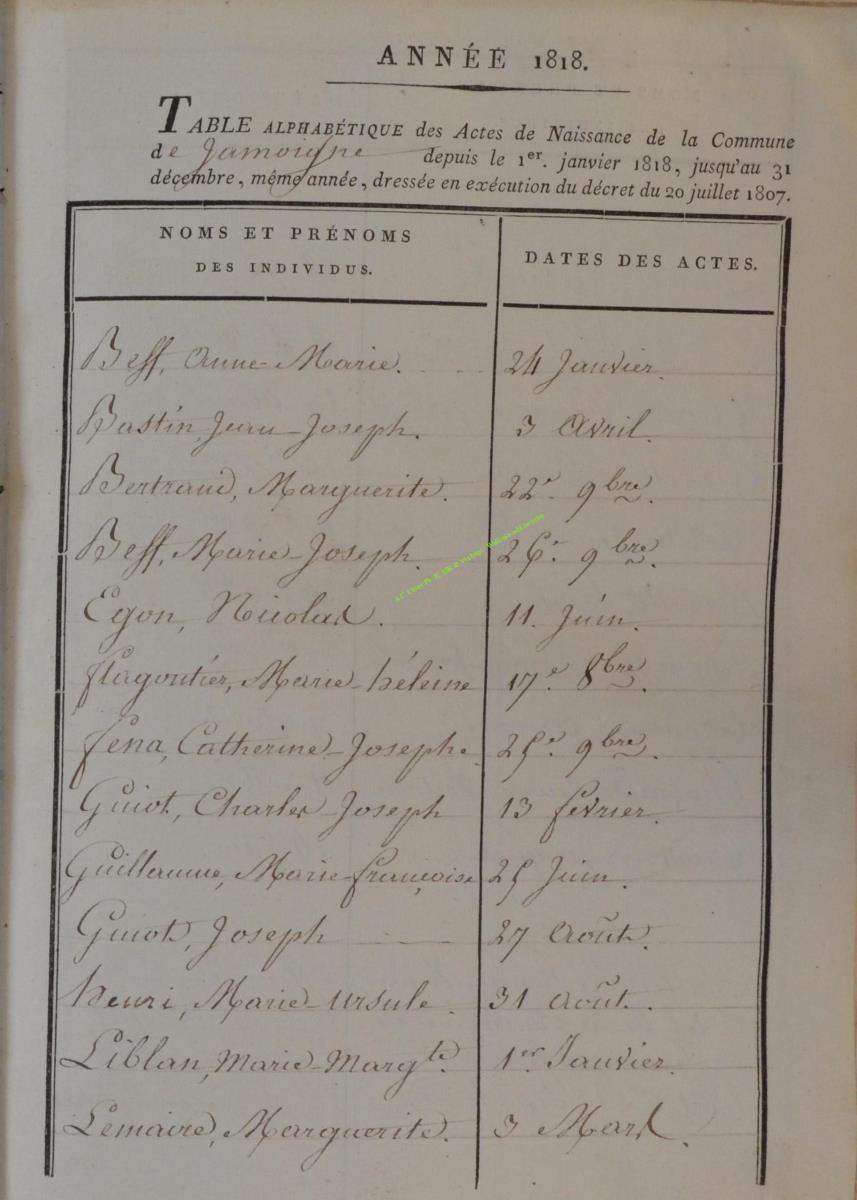 ANNÉE 1818.
TABLE ALPHABÉTIQUE des Actes de Naissance de la Commune
de Jamoigne depuis le 1er. janvier 1818, jusqu'au 31
décembre, même année, dressée en exécution du décret du 20 juillet 1807.
NOMS ET PRÉNOMS
DES INDIVIDUS.
DATES DES ACTES.
Beff, Anne-Marie. 24 Janvier.
Bastin, Jean-Joseph. 3 Avril.
Bertrand, Marguerite. 22e. 9bre.
Beff, Marie-Joseph. 26e. 9bre.
Egon, Nicolas. 11. Juin.
flagontier, Marie-héleine 17e. 8bre.
fena, Catherine-Josephe. 25e. 9bre.
Guiot, Charles Joseph 13 fevrier.
Guillaume, Marie-françoise 25 Juin.
Guiot, Joseph 27 Août.
henri, Marie-Ursule. 31 Août.
Liblan, Marie-Margte. 1er. Janvier.
Lemaire, Marguerite. 3 Mars.